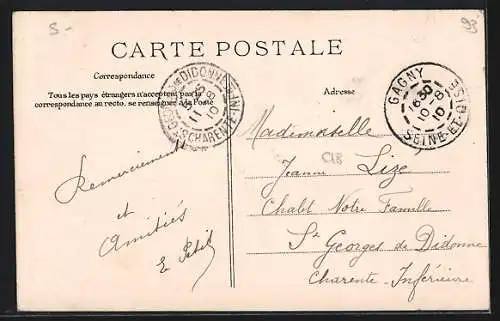 5-
93
CARTE POSTALE
Correspondance
Tous les pays étrangers n'acceptent pas la
correspondance au recto, se renseigner à la Poste
Adresse
GAGNY
16 30
10-8
10
SEINE-ET-OISE
DIDONNE
11 8
10
CHARENTE
Remerciements
et
Amitiés
E. Petit
Mademoiselle
Jeanne Lizé
Chalet Notre Famille
St Georges de Didonne
Charente-Inférieure